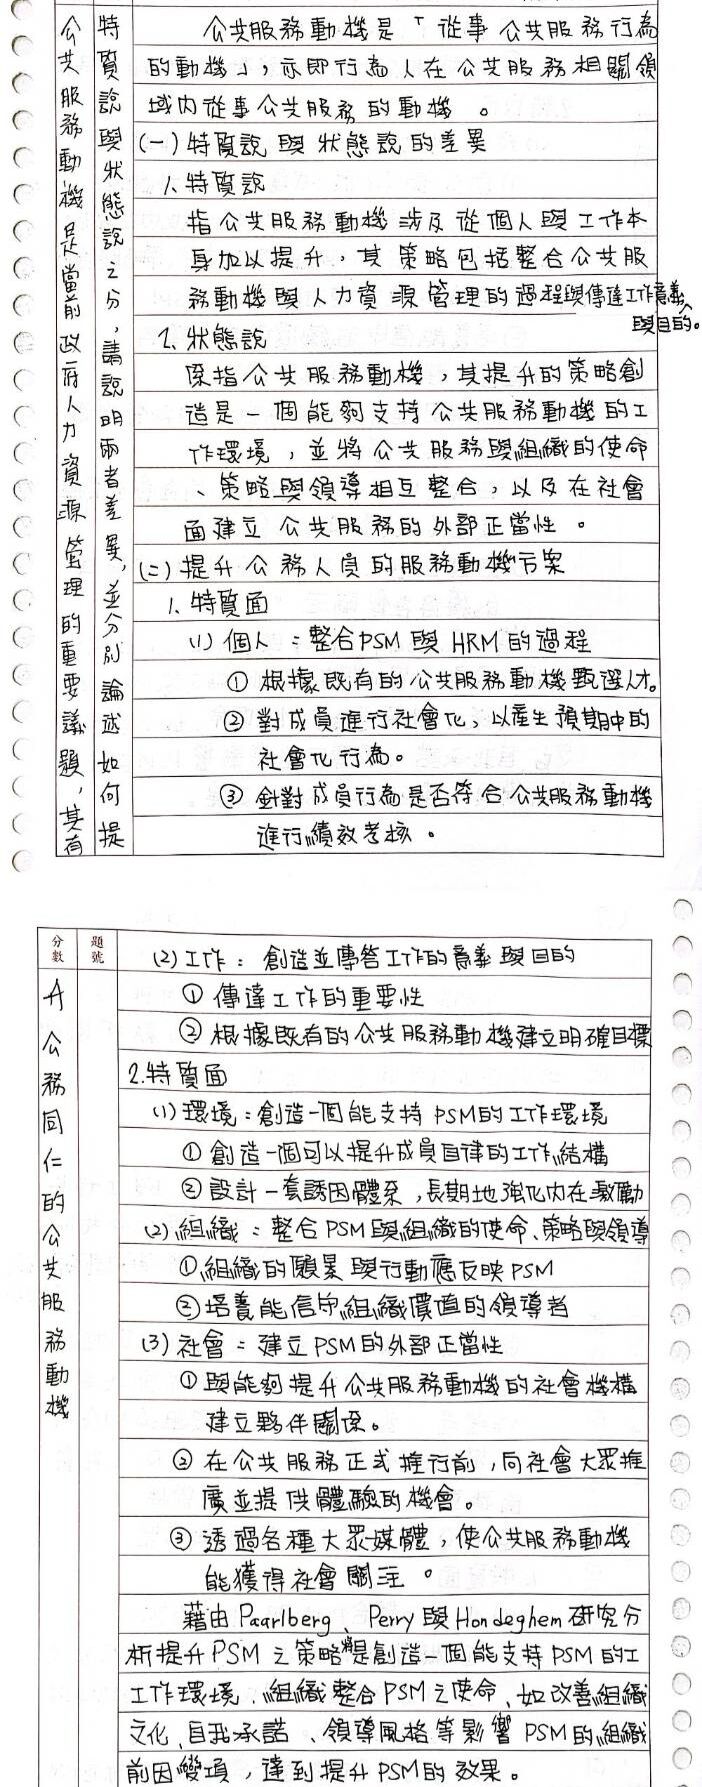 公共服務動機是當前政府人力資源管理的重要議題，其有
特質說與狀態說之分，請說明兩者差異，並分別論述如何提
公共服務動機是「從事公共服務行為
的動機」，亦即行為人在公共服務相關領
域內從事公共服務的動機。
(一)特質說與狀態說的差異
1、特質說
指公共服務動機涉及從個人與工作本
身加以提升，其策略包括整合公共服
務動機與人力資源管理的過程與傳達工作意義
與目的。
2、狀態說
係指公共服務動機，其提升的策略創
造是一個能夠支持公共服務動機的工
作環境，並將公共服務與組織的使命
、策略與領導相互整合，以及在社會
面建立公共服務的外部正當性。
(二)提升公務人員的服務動機方案
1、特質面
(1)個人：整合PSM與HRM的過程
①根據既有的公共服務動機甄選人才。
②對成員進行社會化，以產生預期中的
社會化行為。
③針對成員行為是否符合公共服務動機
進行績效考核。
分數
題號
升公務同仁的公共服務動機
(2)工作：創造並傳答工作的意義與目的
①傳達工作的重要性
②根據既有的公共服務動機建立明確目標
2.特質面
(1)環境：創造一個能支持PSM的工作環境
①創造一個可以提升成員自律的工作結構
②設計一套誘因體系，長期地強化內在激勵
(2)組織：整合PSM與組織的使命、策略與領導
①組織的願景與行動應反映PSM
②培養能信守組織價值的領導者
(3)社會：建立PSM的外部正當性
①與能夠提升公共服務動機的社會機構
建立夥伴關係。
②在公共服務正式推行前，向社會大眾推
廣並提供體驗的機會。
③透過各種大眾媒體，使公共服務動機
能獲得社會關注。
藉由Paarlberg、Perry與Hondeghem研究分
析提升PSM之策略是創造一個能支持PSM的工
工作環境、組織整合PSM之使命、如改善組織
文化、自我承諾、領導風格等影響PSM的組織
前因變項，達到提升PSM的效果。